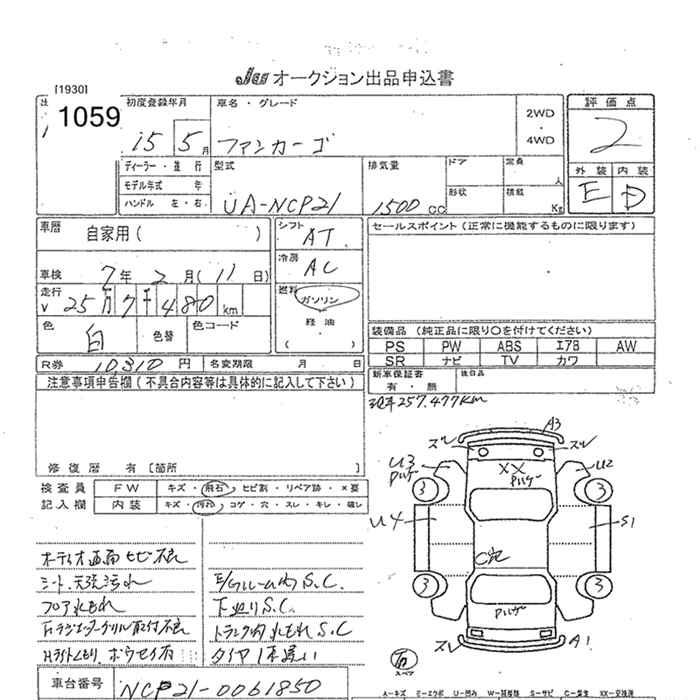 JU オークション出品申込書
[1930]
1059
初度登録年月 車名・グレード 2WD・4WD 評価点
15 5月 ファンカーゴ 2
ディーラー・並行 型式 排気量 ドア 定員 人 外装 内装
モデル年式 年 形状 積載 Kg E D
ハンドル 左・右 UA-NCP21 1500cc
車歴 自家用( ) シフト AT セールスポイント(正常に機能するものに限ります)
冷房 AC
車検 7年2月(11日)
走行 25万7千480km 燃料 ガソリン
軽油
( )
色 白 色替 色コード
装備品(純正品に限り○を付けてください)
PS PW ABS エアB AW
SR ナビ TV カワ
R券 10310円 名変期限 月 日
新車保証書 有・無 後日品
注意事項申告欄(不具合内容等は具体的に記入して下さい)
257.477Km
修復歴 有[箇所 ]
検査員 FW キズ・飛石・ヒビ割・リペア跡・×要
記入欄 内装 キズ・汚れ・コゲ・穴・スレ・キレ・破レ
A3
ズレ ズレ
U3 XX U2
ハゲ ハゲ
3 3
U4 S1
C穴
3 3
ハゲ
ズレ A1
スペア
オーディオ画面ヒビ不良
シート、天張汚れ E/Gルーム内S.C.
フロア水もれ 下廻りS.C.
トランク内水もれS.C
Hライトくもり、ボウセイ有 タイヤ1本違い
車台番号 NCP21-0061850
A-キズ E-エクボ U-凹み W-補修跡 S-サビ C-腐食 X-要交換 XX-交換済